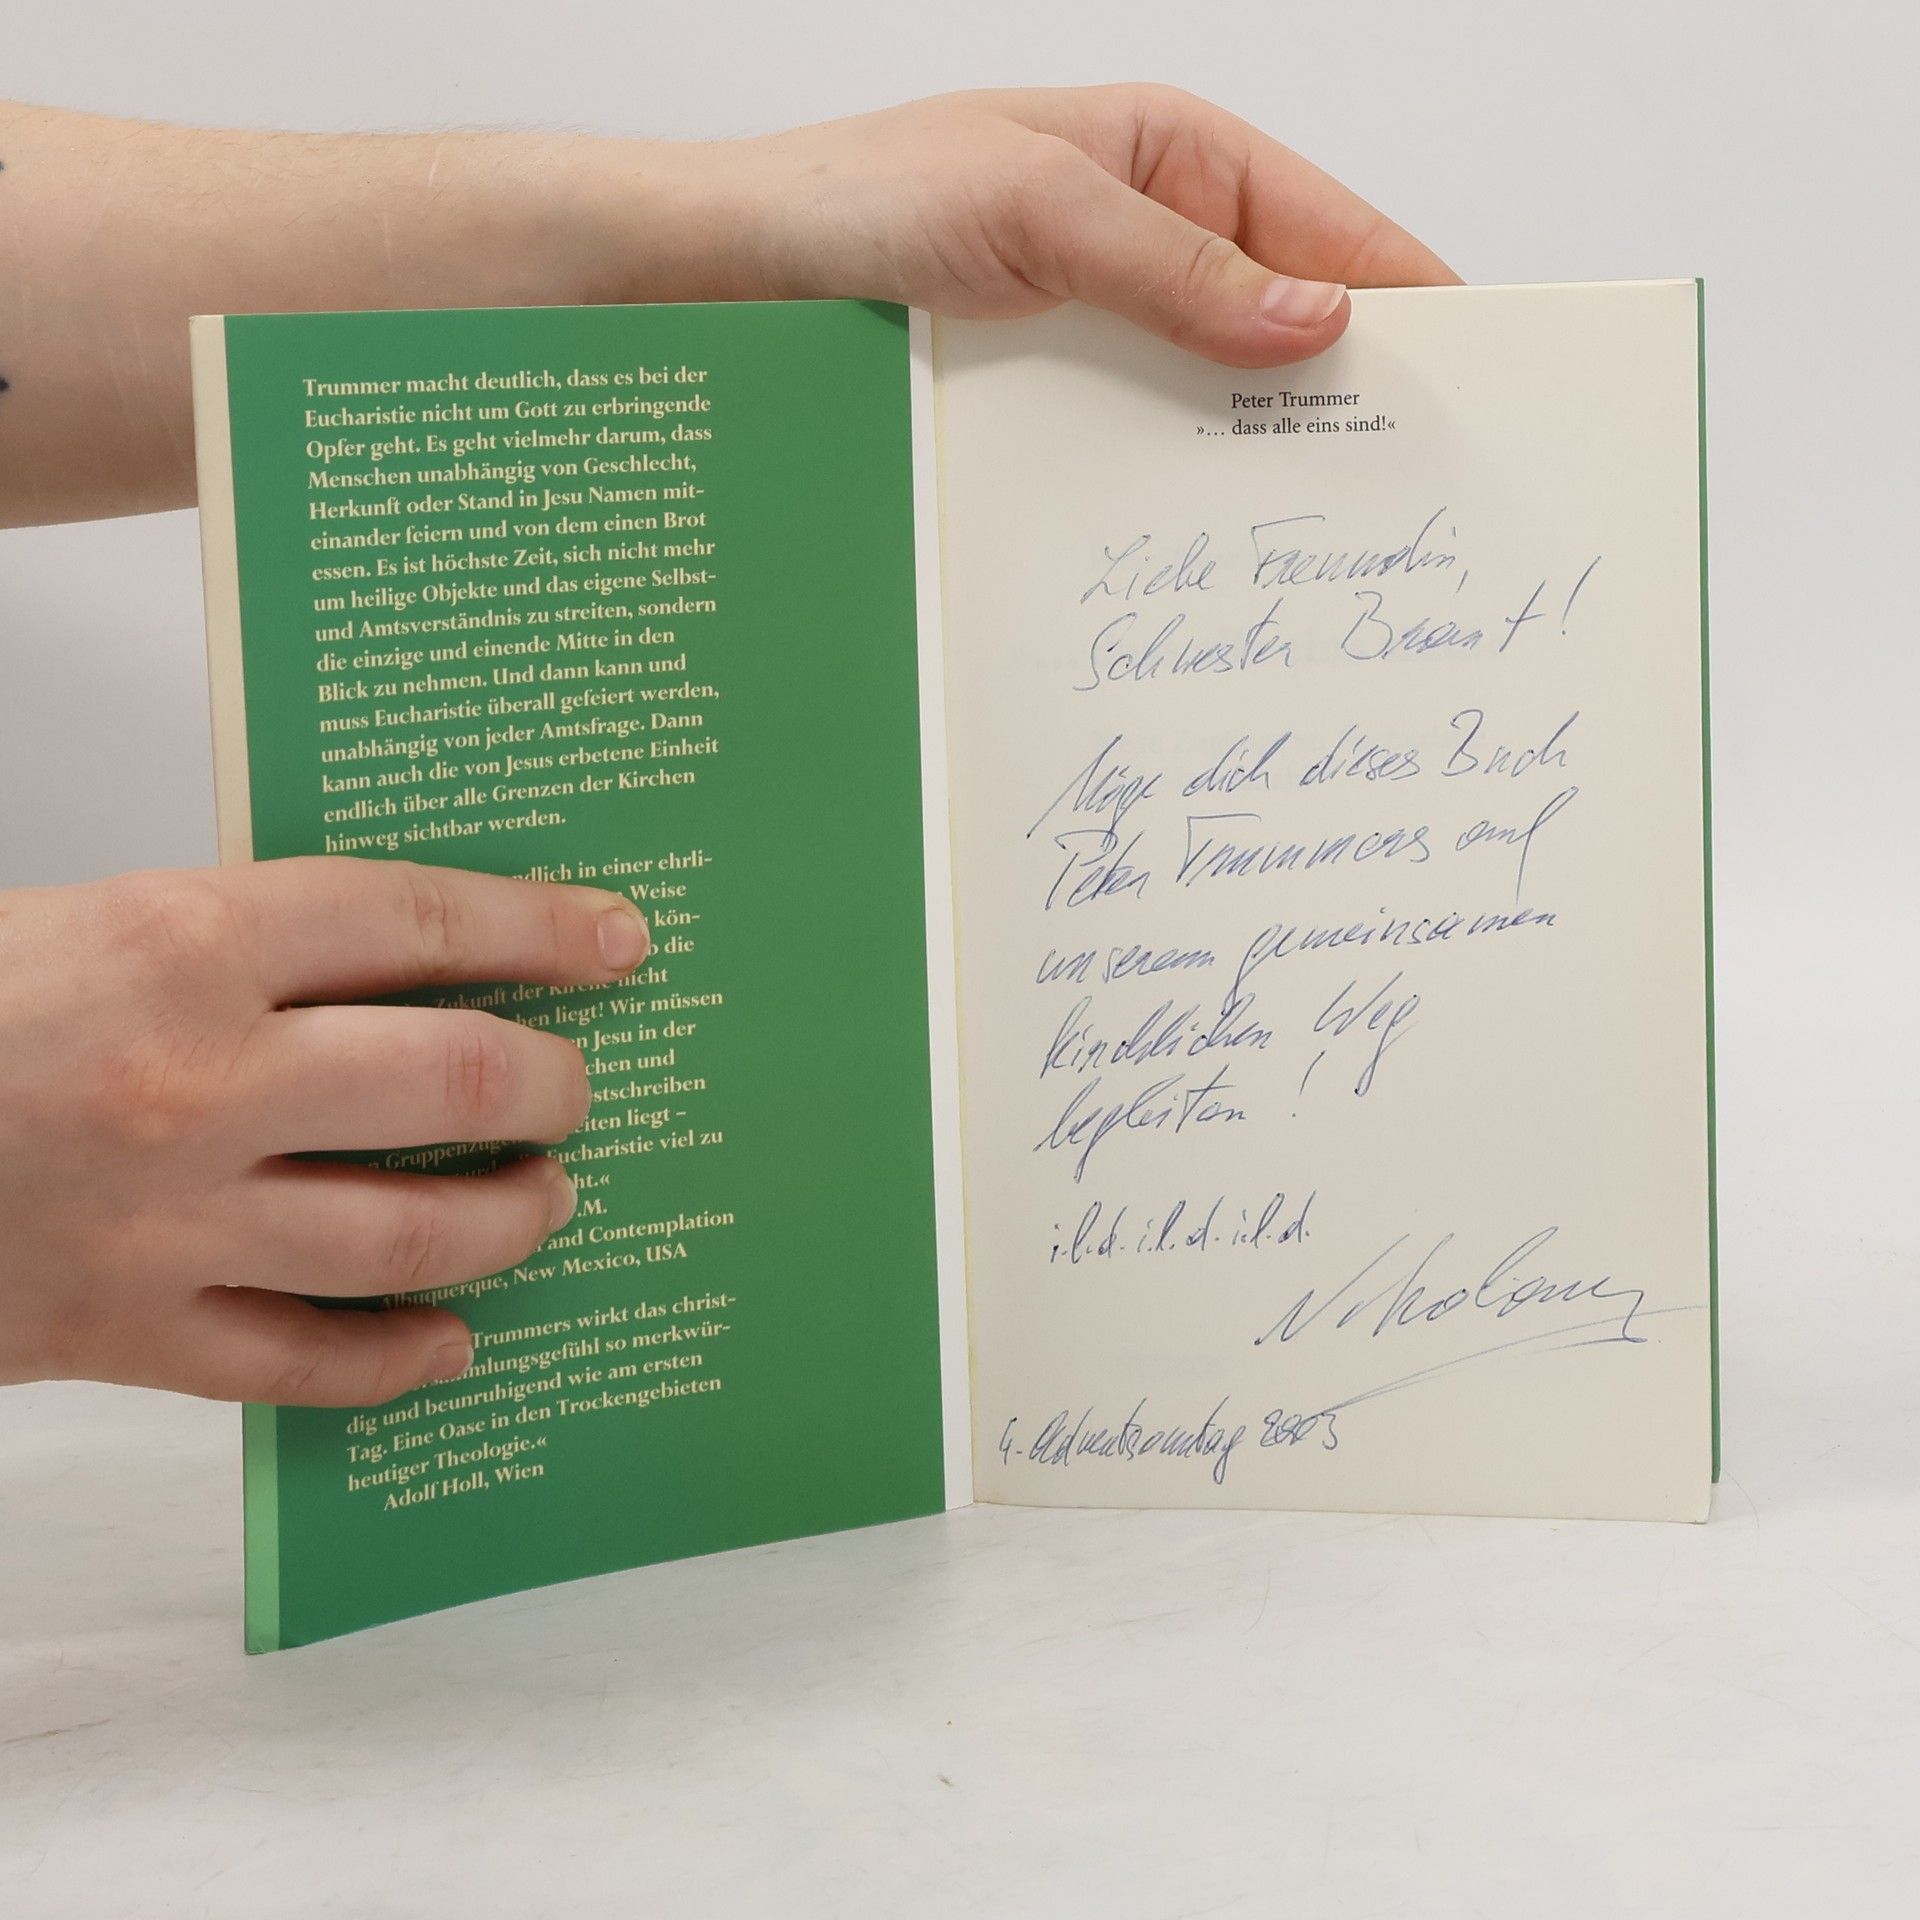 Trummer macht deutlich, dass es bei der
Eucharistie nicht um Gott zu erbringende
Opfer geht. Es geht vielmehr darum, dass
Menschen unabhängig von Geschlecht,
Herkunft oder Stand in Jesu Namen mit-
einander feiern und von dem einen Brot
essen. Es ist höchste Zeit, sich nicht mehr
um heilige Objekte und das eigene Selbst-
und Amtsverständnis zu streiten, sondern
die einzige und einende Mitte in den
Blick zu nehmen. Und dann kann und
muss Eucharistie überall gefeiert werden,
unabhängig von jeder Amtsfrage. Dann
kann auch die von Jesus erbetene Einheit
endlich über alle Grenzen der Kirchen
hinweg sichtbar werden.
in einer ehrli-
Weise
kön-
die
Zukunft der Kirche nicht
liegt! Wir müssen
Jesu in der
und
liegt –
Gruppenzugeh
Eucharistie viel zu
and Contemplation
Albuquerque, New Mexico, USA
Trummers wirkt das christ-
so merkwür-
dig und beunruhigend wie am ersten
Tag. Eine Oase in den Trockengebieten
heutiger Theologie.«
Adolf Holl, Wien
Peter Trummer
»... dass alle eins sind!«
Liebe Freundin,
Schwester Braut!
Möge dich dieses Buch
Peter Trummers auf
unserem gemeinsamen
kirchlichen Weg
begleiten!
i.l.d. i.l.d. i.l.d.
4. Adventsonntag 2003